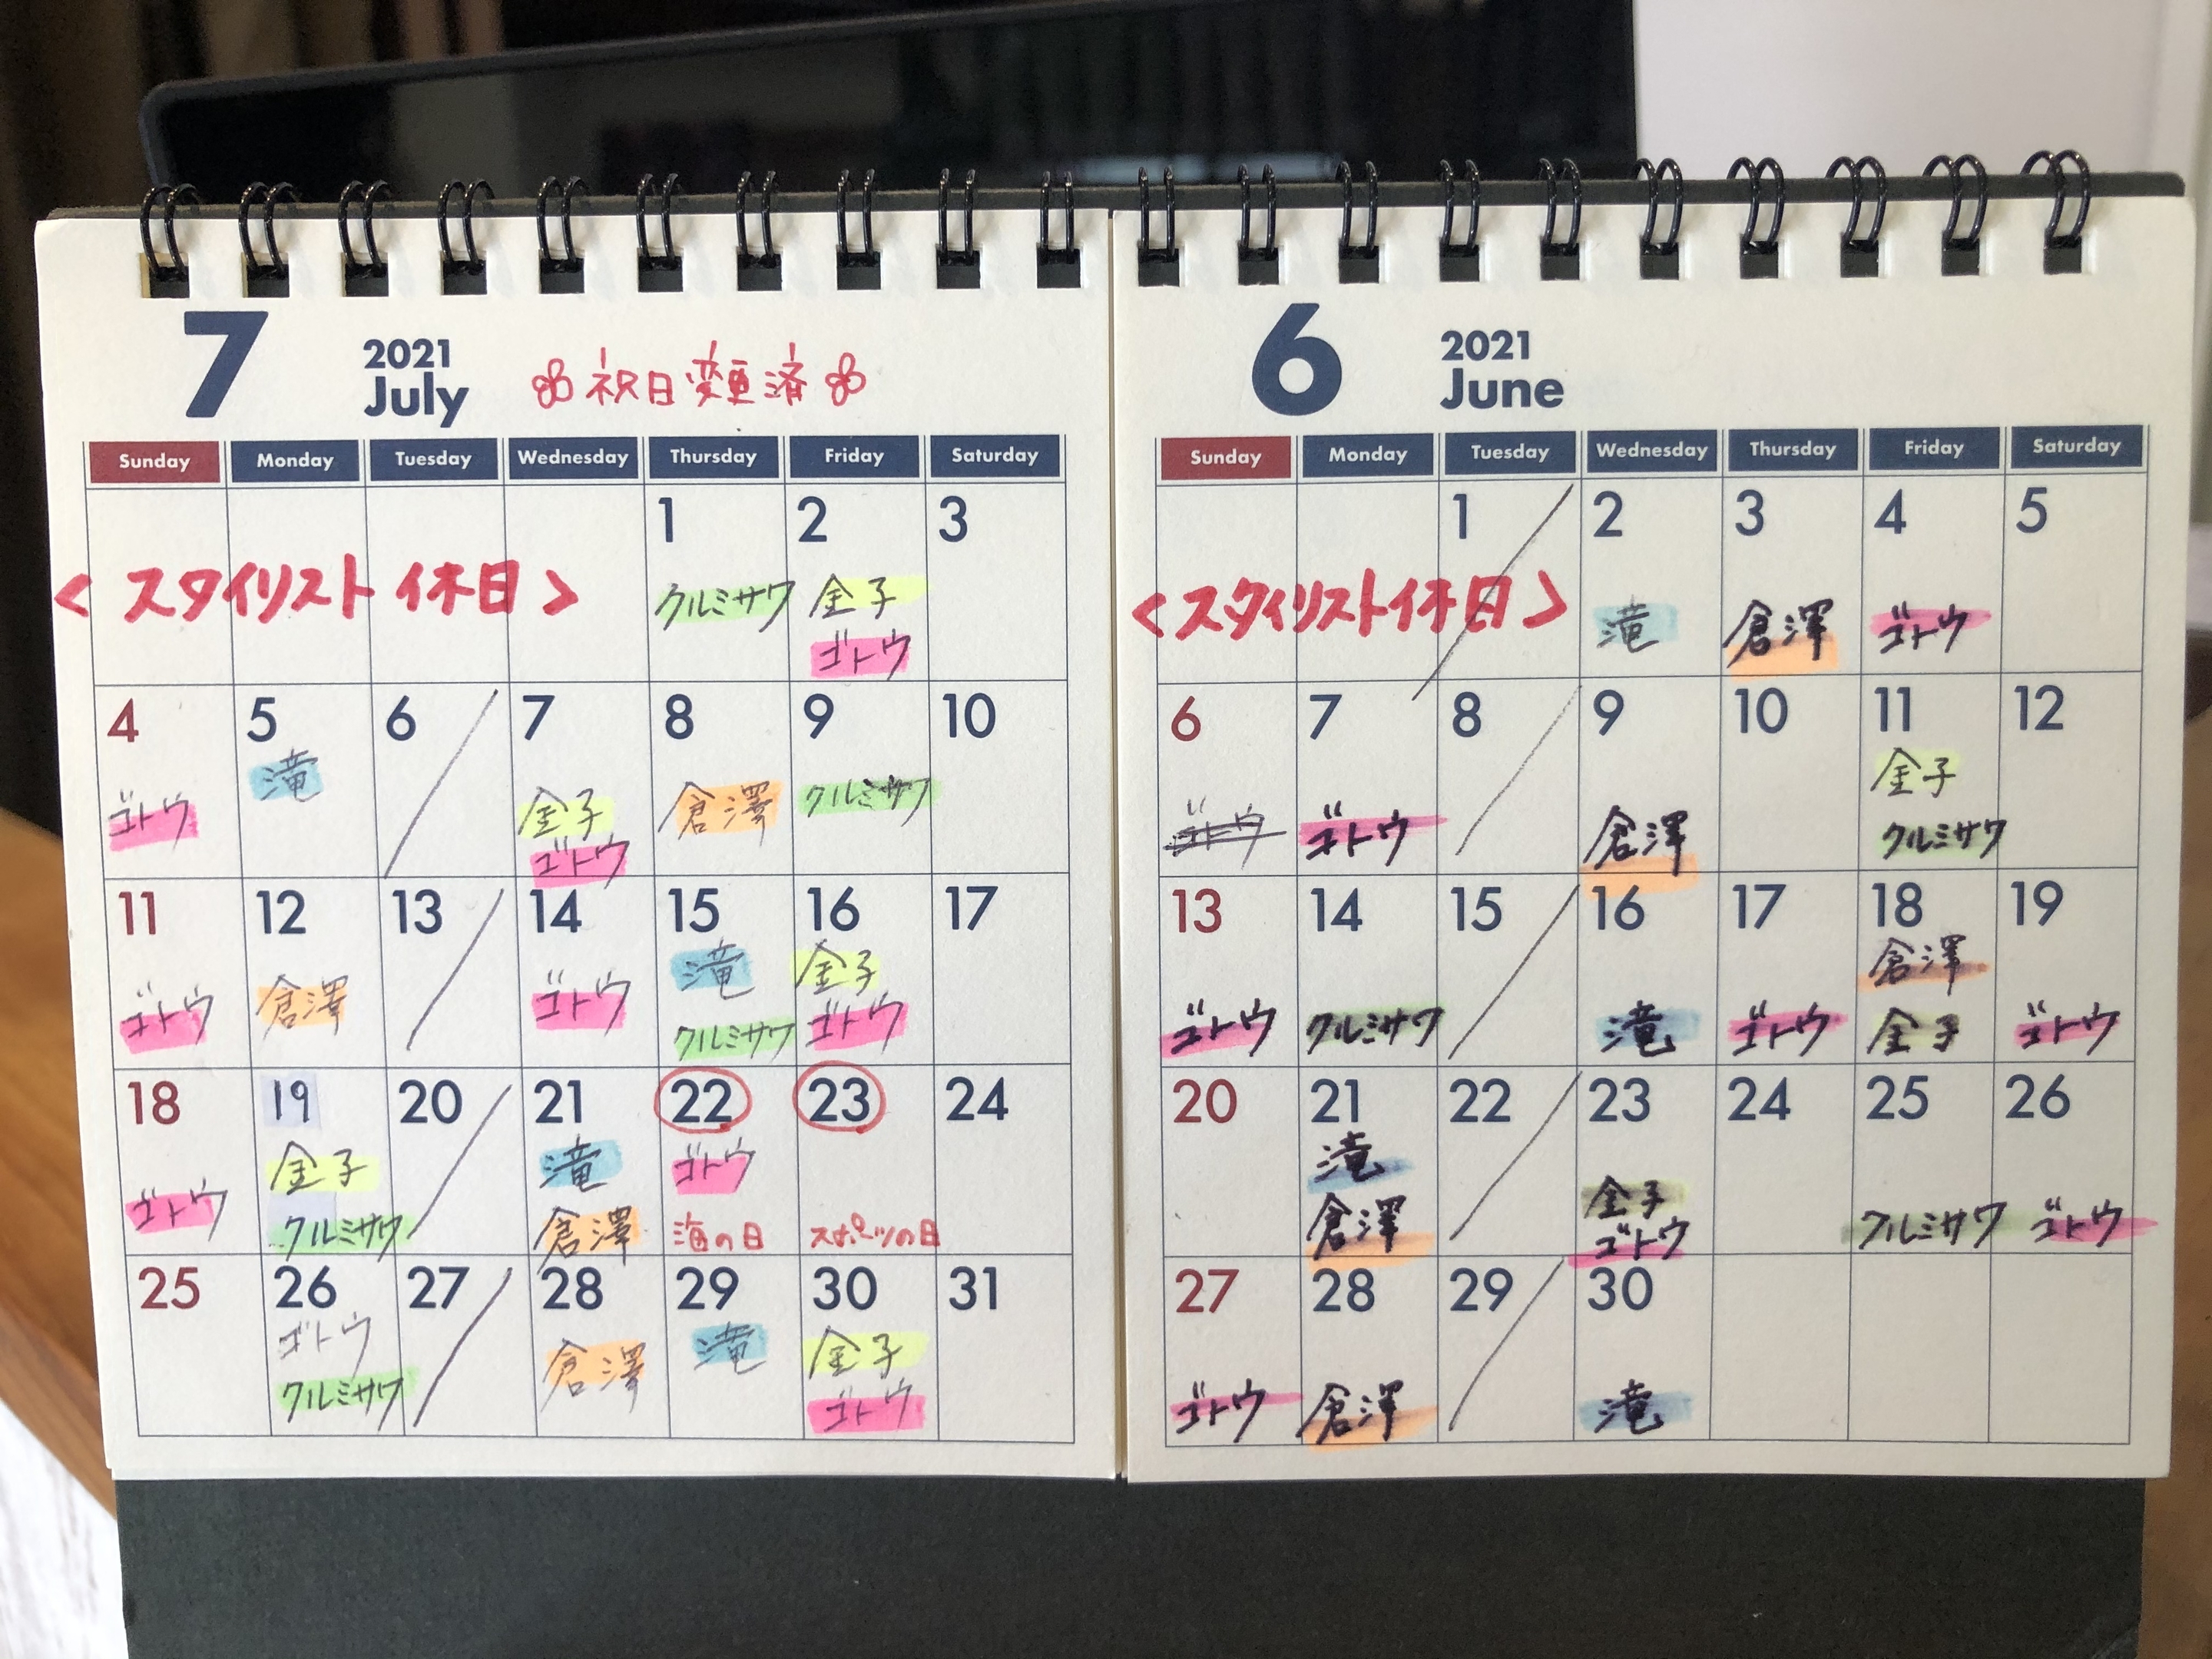 7
2021
July
祝日変更済
Sunday Monday Tuesday Wednesday Thursday Friday Saturday
1 2 3
<スタイリスト休日>
クルミサワ 金子
ゴトウ
4 5 6 7 8 9 10
滝
ゴトウ 金子 倉澤 クルミサワ
ゴトウ
11 12 13 14 15 16 17
滝 金子
ゴトウ 倉澤 ゴトウ クルミサワ ゴトウ
18 19 20 21 22 23 24
金子 滝 ゴトウ
ゴトウ クルミサワ 倉澤 海の日 スポーツの日
25 26 27 28 29 30 31
ゴトウ 倉澤 滝 金子
クルミサワ ゴトウ
6
2021
June
Sunday Monday Tuesday Wednesday Thursday Friday Saturday
1 2 3 4 5
<スタイリスト休日>
滝 倉澤 ゴトウ
6 7 8 9 10 11 12
金子
ゴトウ ゴトウ 倉澤 クルミサワ
13 14 15 16 17 18 19
倉澤
ゴトウ クルミサワ 滝 ゴトウ 金子 ゴトウ
20 21 22 23 24 25 26
滝 金子
倉澤 ゴトウ クルミサワ ゴトウ
27 28 29 30
ゴトウ 倉澤 滝